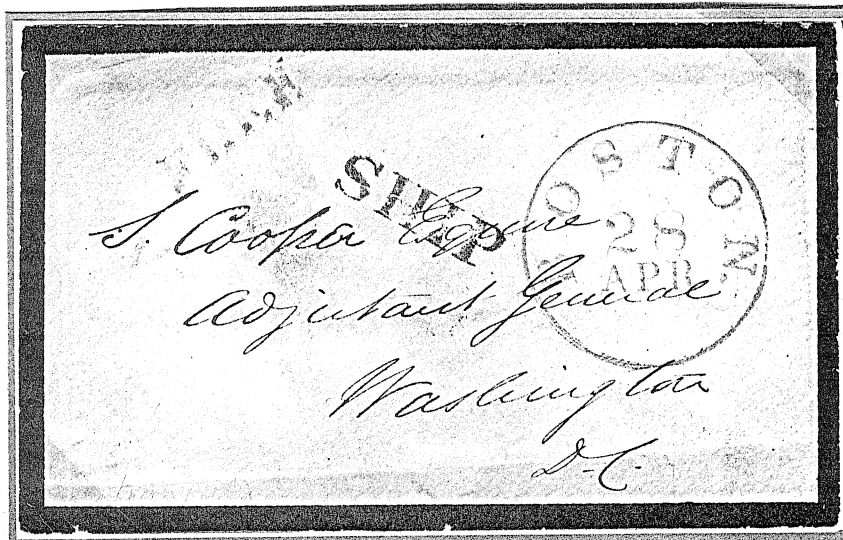 FREE
SHIP
BOSTON
28
APR
S. Cooper Esquire
Adjutant General
Washington
D.C.